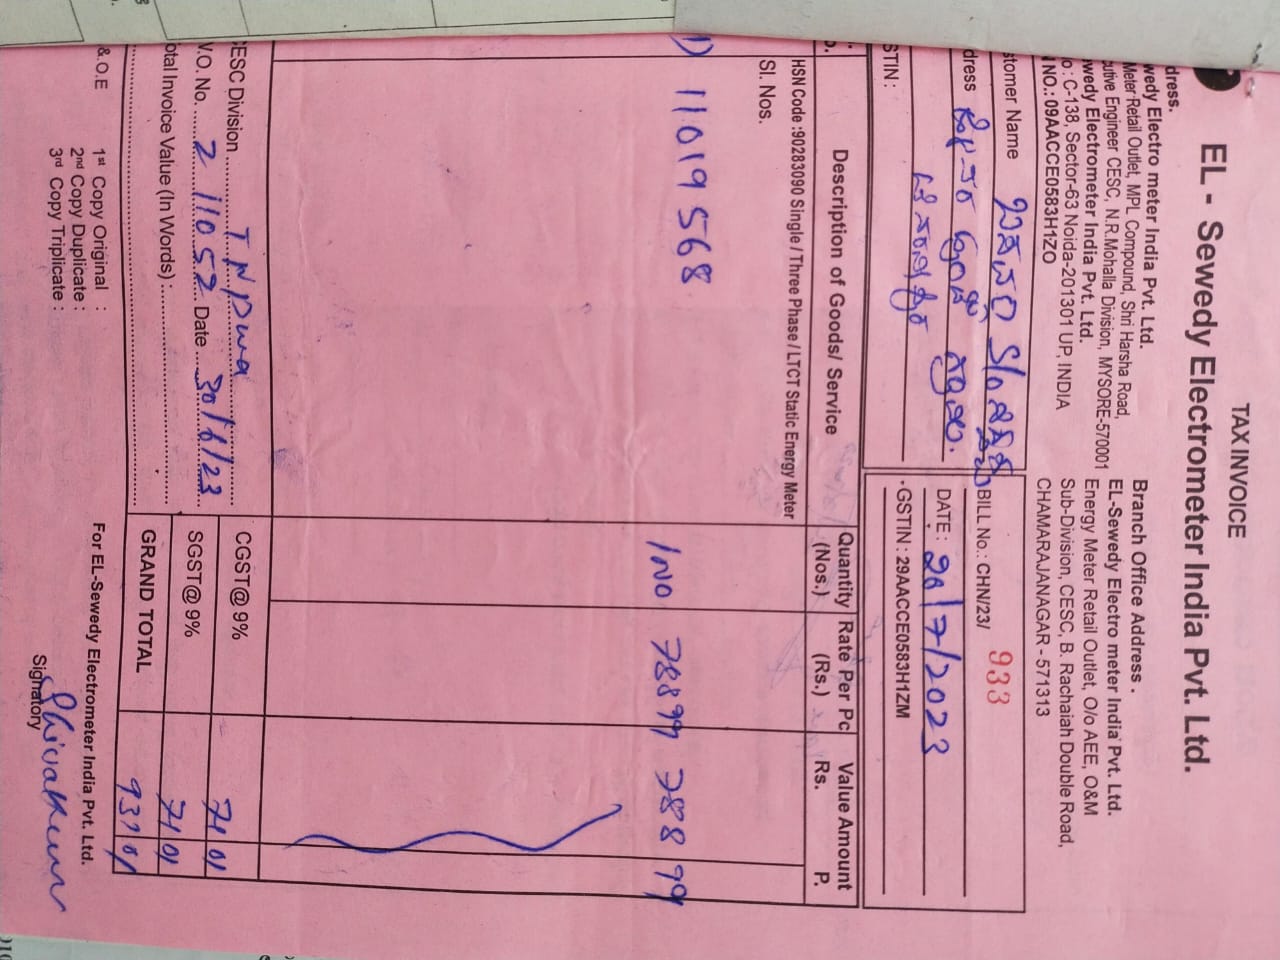 TAX INVOICE
EL - Sewedy Electrometer India Pvt. Ltd.
dress.
wedy Electro meter India Pvt. Ltd.
Meter Retail Outlet, MPL Compound, Shri Harsha Road,
utive Engineer CESC, N.R.Mohalla Division, MYSORE-570001
wedy Electrometer India Pvt. Ltd.
o : C-138, Sector-63 Noida-201301 UP, INDIA
NO.: 09AACCE0583H1ZO
Branch Office Address .
EL-Sewedy Electro meter India Pvt. Ltd.
Energy Meter Retail Outlet, O/o AEE, O&M
Sub-Division, CESC, B. Rachaiah Double Road,
CHAMARAJANAGAR - 571313
stomer Name S/o
dress
STIN :
BILL No.: CHN/23/ 933
DATE : 20/7/2023
GSTIN : 29AACCE0583H1ZM
Description of Goods/ Service Quantity (Nos.) Rate Per Pc (Rs.) Value Amount Rs. P.
HSN Code :90283090 Single / Three Phase / LTCT Static Energy Meter
Sl. Nos.
1) 11019568 1NO 788 99 788 99
CESC Division T N Pura
W.O. No. 2 11052 Date 30/6/23
otal Invoice Value (In Words) :
CGST@ 9% 71 01
SGST@ 9% 71 01
GRAND TOTAL 931 01
&.O.E
1st Copy Original :
2nd Copy Duplicate :
3rd Copy Triplicate :
For EL-Sewedy Electrometer India Pvt. Ltd.
Shivakumar
Signatory